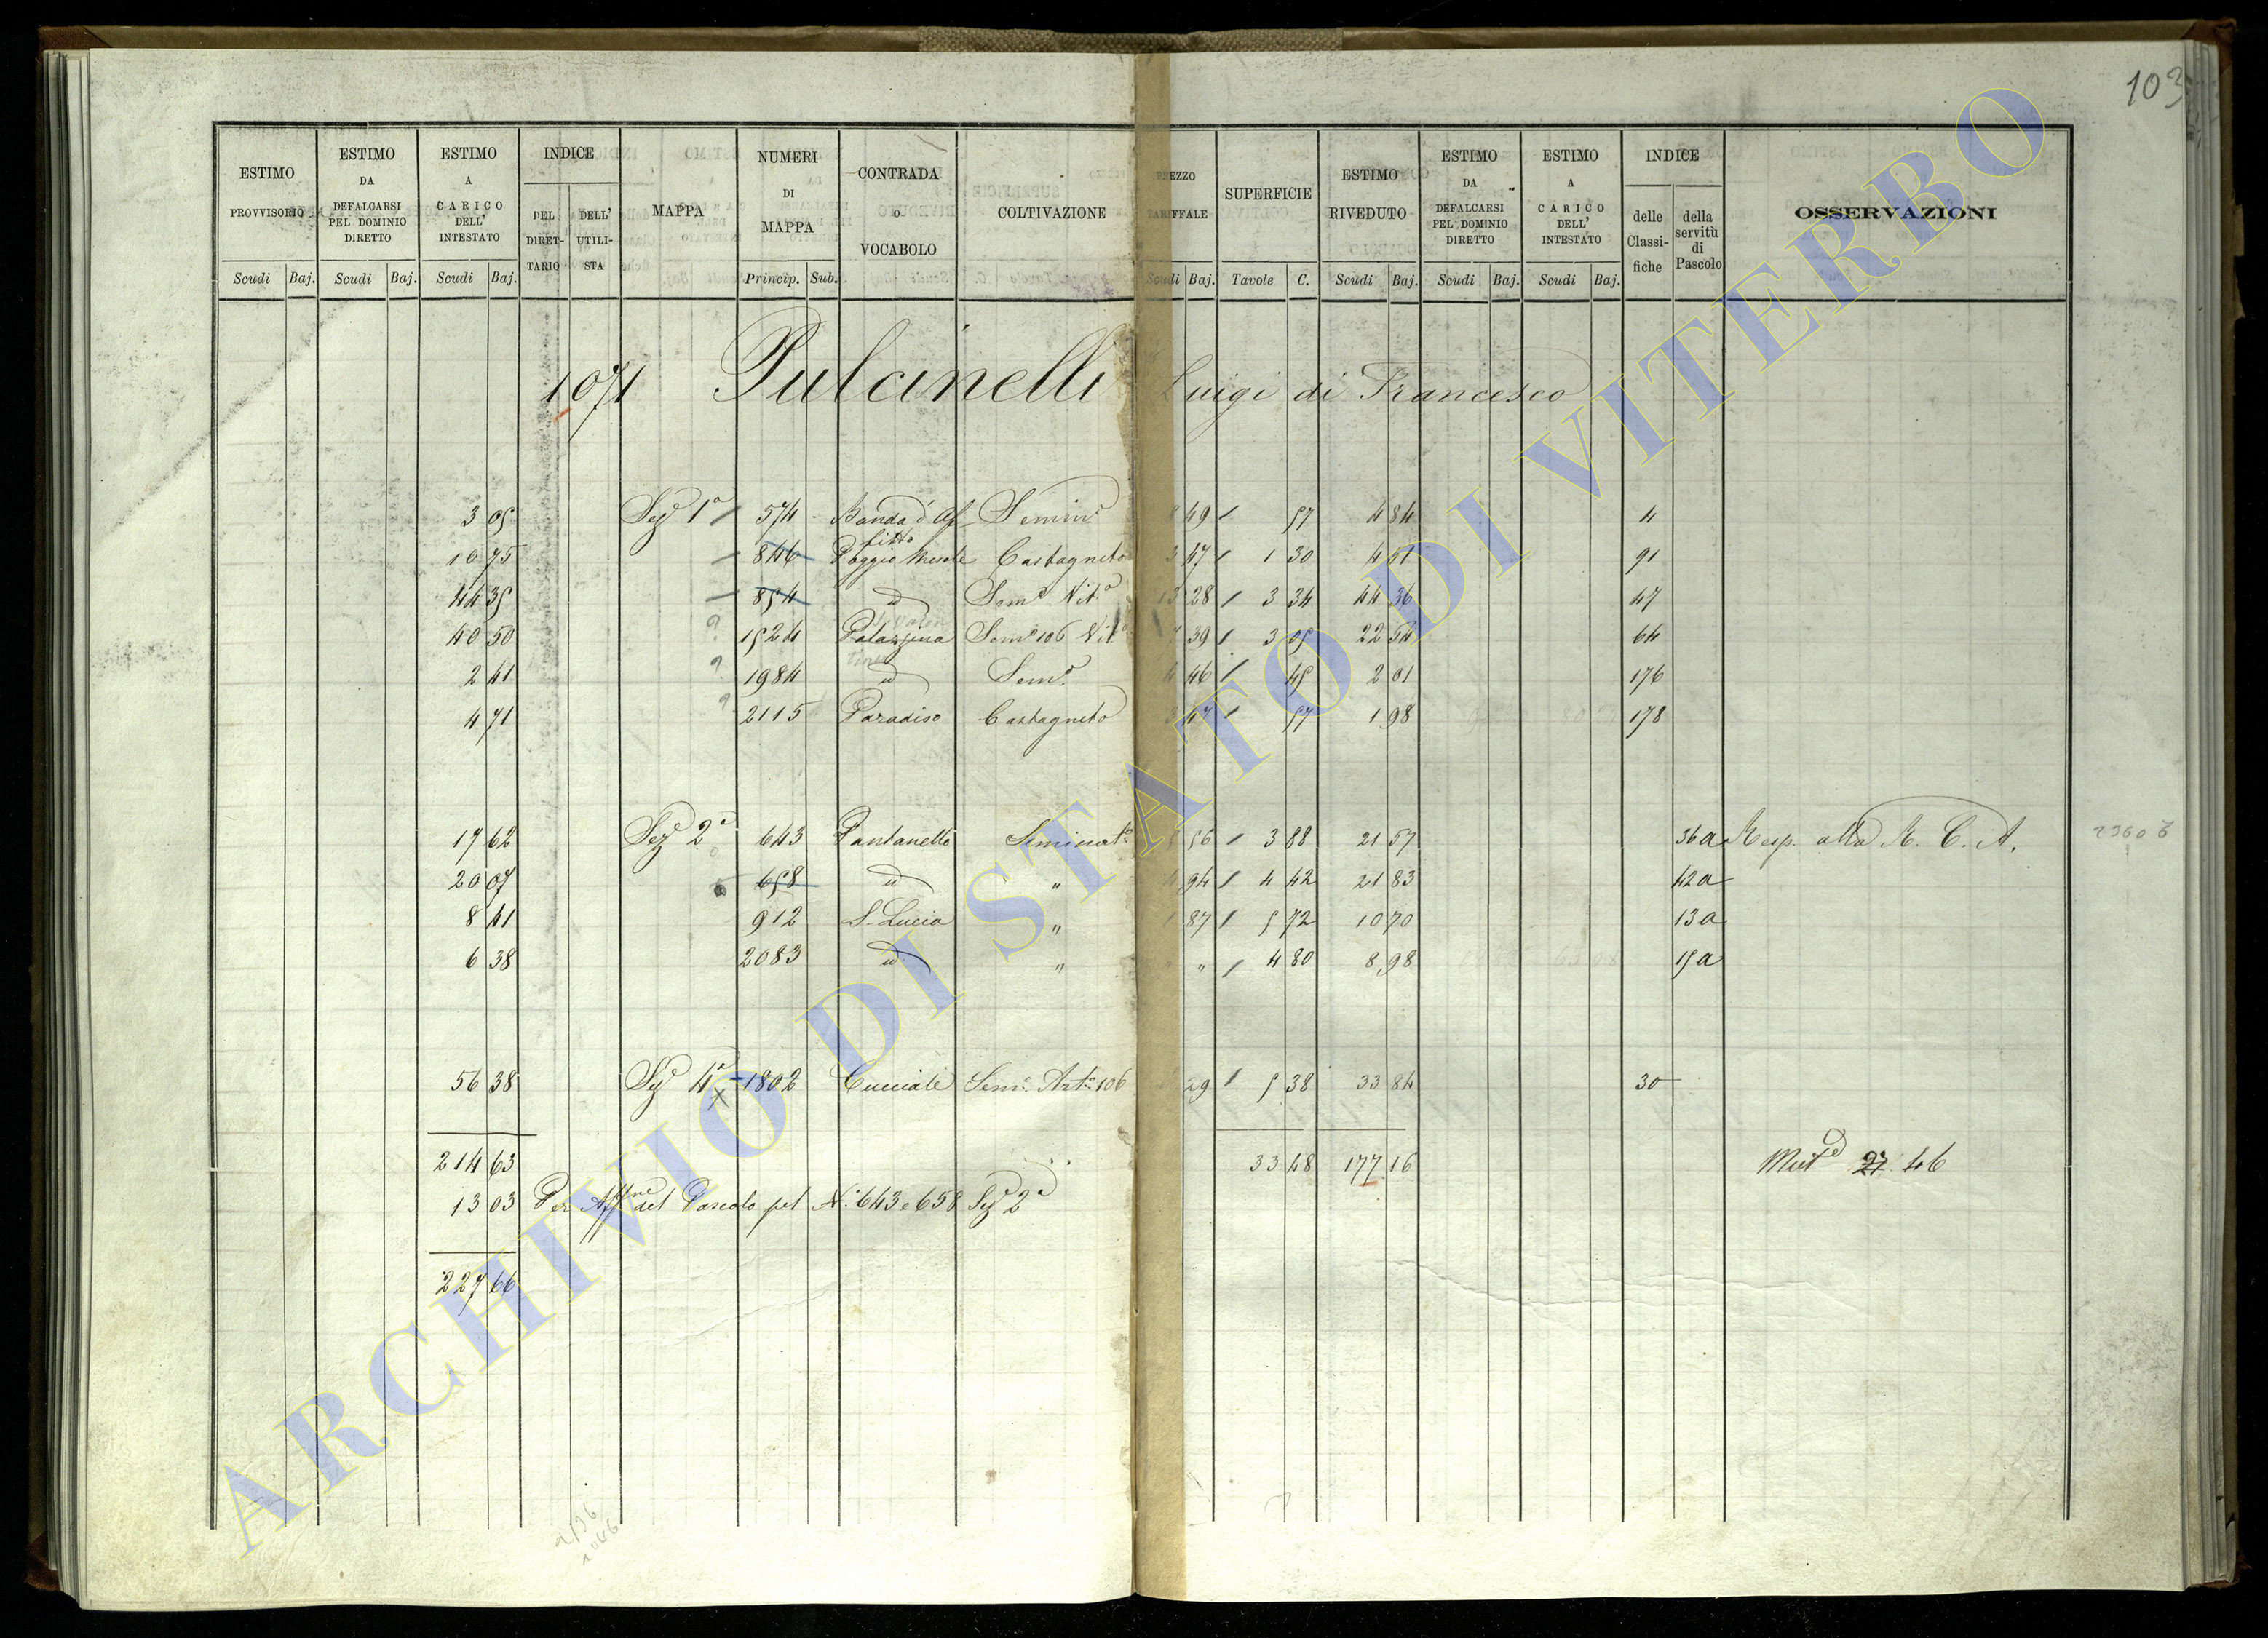 103
ESTIMO PROVVISORIO Scudi Baj.
ESTIMO DA DEFALCARSI PEL DOMINIO DIRETTO Scudi Baj.
ESTIMO A CARICO DELL' INTESTATO Scudi Baj.
INDICE DEL DIRETTARIO DELL' UTILISTA
MAPPA
NUMERI DI MAPPA Princip. Sub.
CONTRADA o VOCABOLO
COLTIVAZIONE
PREZZO TARIFFALE Scudi Baj.
SUPERFICIE Tavole C.
ESTIMO RIVEDUTO Scudi Baj.
ESTIMO DA DEFALCARSI PEL DOMINIO DIRETTO Scudi Baj.
ESTIMO A CARICO DELL' INTESTATO Scudi Baj.
INDICE delle Classifiche della servitù di Pascolo
OSSERVAZIONI
1071 Pulcinelli Luigi di Francesco
3 05 Sez.e 1a 574 Banda d'Affitto Semin.o 8 49 57 4 84 4
10 75 846 Poggio Castagneto 3 47 1 30 4 51 91
44 35 854 id Sem.o Vit.o 13 28 3 34 44 36 47
40 50 1524 Palazzina Sem.o 106 Vit. 7 39 3 05 22 54 64
2 41 1984 id Sem.o 4 46 45 2 01 176
4 71 2115 Paradiso Castagneto 3 47 57 1 98 178
17 62 Sez.e 2a 643 Pantanello Seminat.o 5 56 3 88 21 57 36a Resp. alla R. C. A.
20 07 658 id " 4 94 4 42 21 83 42a
8 41 912 S. Lucia " 1 87 5 72 10 70 13a
6 38 2083 id " " 4 80 8 98 15a
56 38 Sez.e 4a 1802 Cucciale Sem.o Art.o 106 29 5 38 33 84 30
214 63 33 48 177 16 Mut.e 27 46
13 03 Per Aff.ne del Pascolo pel N. 643 e 658 Sez.e 2a
227 66
ARCHIVIO DI STATO DI VITERBO